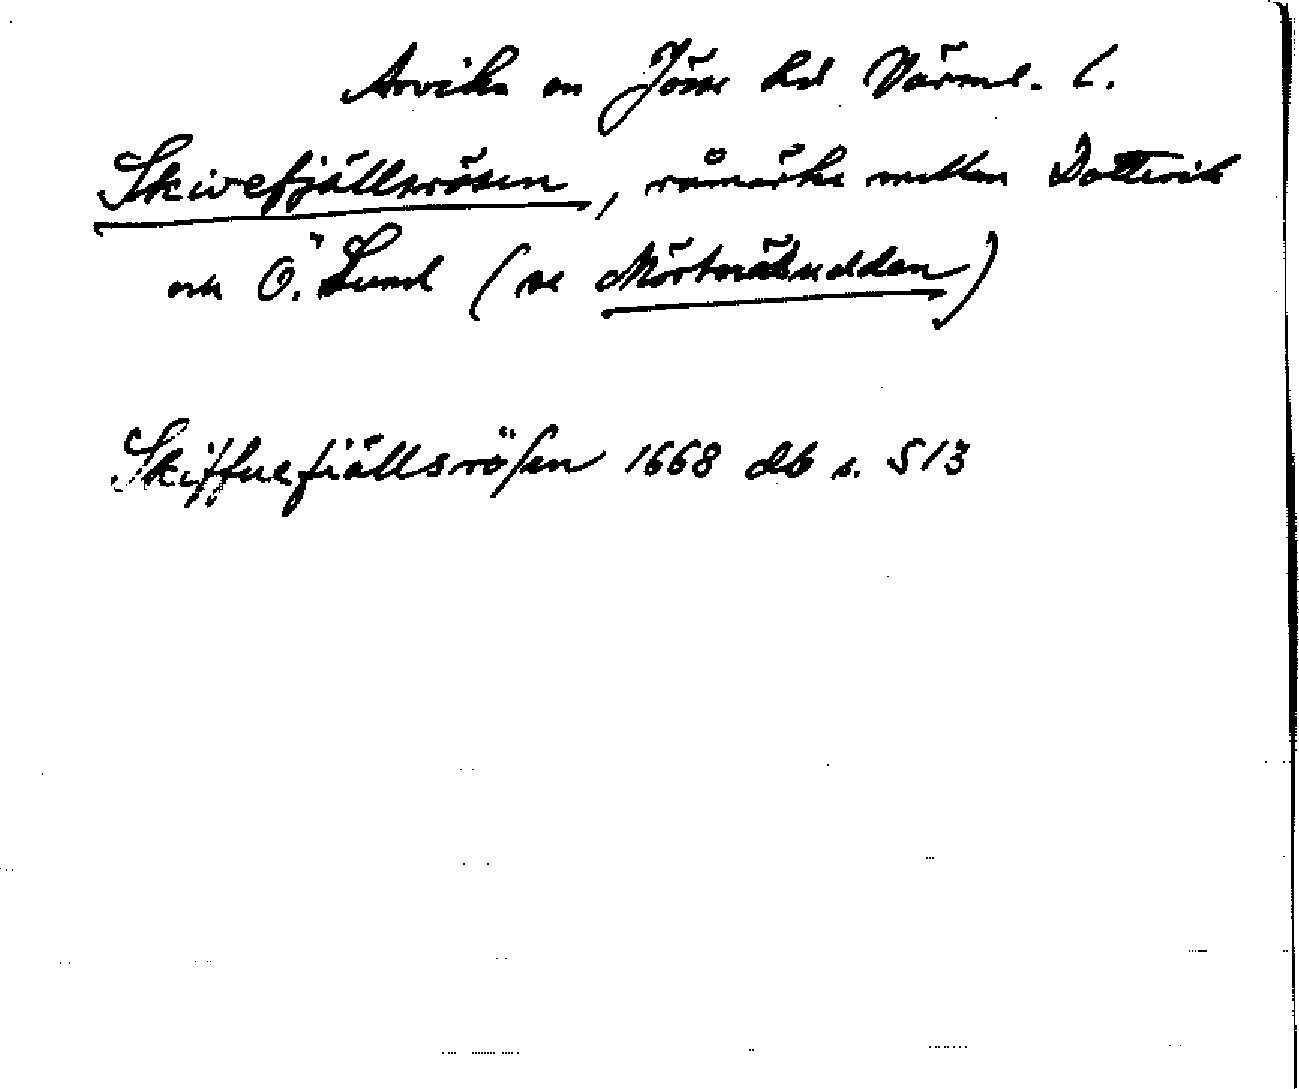 Arvika sn Jösse hd Värml. l.
Skivefjällsrösen, råmärke mellan Dottevik
och Ö. Sund (se Mörtnäsudden)
Skiffuefiällsrösen 1668 db s. 513